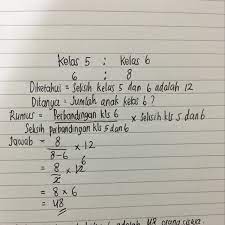 Kelas 5 : Kelas 6
6 : 8
Diketahui = Selisih kelas 5 dan 6 adalah 12
Ditanya = Jumlah anak kelas 6 ?
Rumus = Perbandingan kls 6 / Selisih perbandingan kls 5 dan 6 x Selisih kls 5 dan 6
Jawab = 8 / 8-6 x 12
= 8 / 2 x 12 6
= 8 x 6
= 48
kelas 6 adalah 48 orang siswa